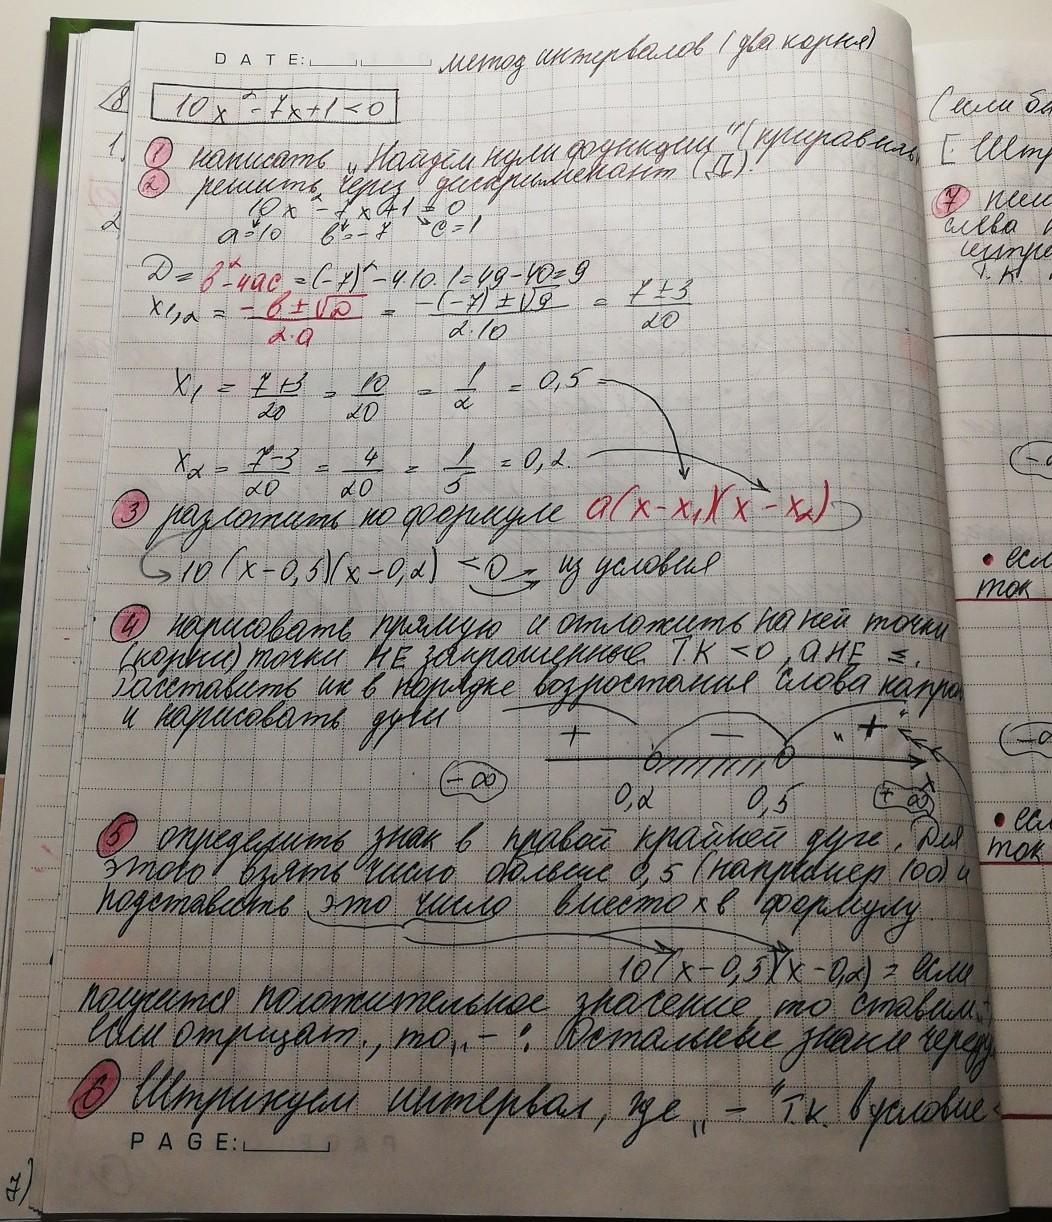 DATE: метод интервалов (два корня)
10x² - 7x + 1 < 0
1 написать „Найдём нули функции" (приравнять
2 решить через дискриминант (Д).
10x² - 7x + 1 = 0
a = 10 b = -7 c = 1
Д = b² - 4ac = (-7)² - 4·10·1 = 49 - 40 = 9
x1,2 = (-b ± √D)/(2·a) = (-(-7) ± √9)/(2·10) = (7 ± 3)/20
x1 = (7+3)/20 = 10/20 = 1/2 = 0,5
x2 = (7-3)/20 = 4/20 = 1/5 = 0,2.
3 разложить по формуле a(x - x1)(x - x2)
10(x - 0,5)(x - 0,2) < 0 из условия
4 нарисовать прямую и отложить на ней точки
(корни) точки НЕ закрашенные ТК < 0, а НЕ ≤.
Расставить их в порядке возростания слева напра
и нарисовать дуги
+ - „+"
-∞ 0,2 0,5 +∞ x
5 определить знак в правой крайней дуге. Для
этого взять число больше 0,5 (например 100) и
подставить это число вместо x в формулу
10(x - 0,5)(x - 0,2) = если
получится положительное значение, то ставим
если отрицат., то „-". Остальные знаки череду
6 Штрихуем интервал, где „-" т.к. в условие <
PAGE:
(если
[ Штр
7
слева
штри
т.к.
-∞
• есл
ток
-∞
• есл
ток
8
1.
2
7)